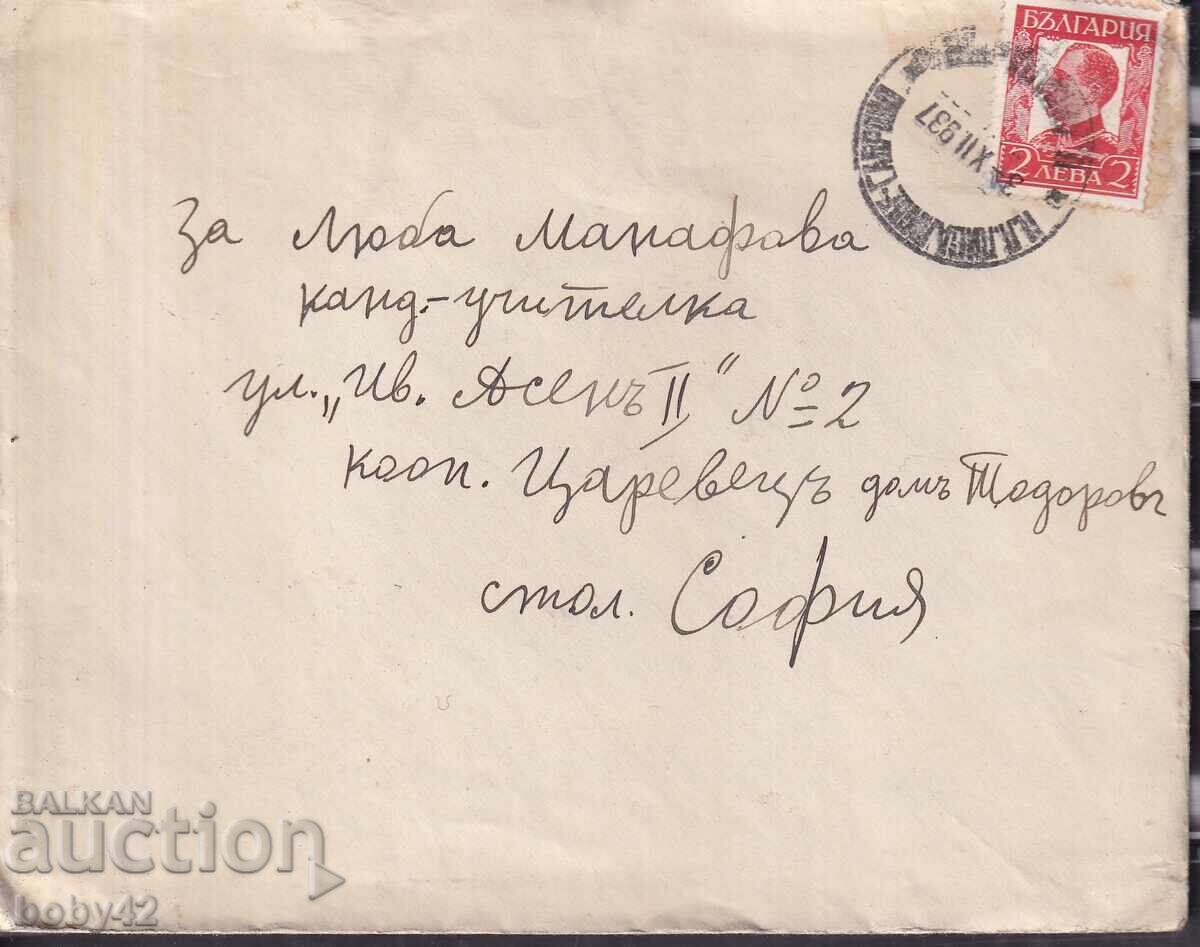 БЪЛГАРИЯ
2 ЛЕВА 2
XII 937
За Люба Манафова
канд.-учителка
ул. „Ив. Асенъ II" № 2
кооп. Царевецъ домъ Тодоровъ
стол. София
BALKAN
auction
boby42